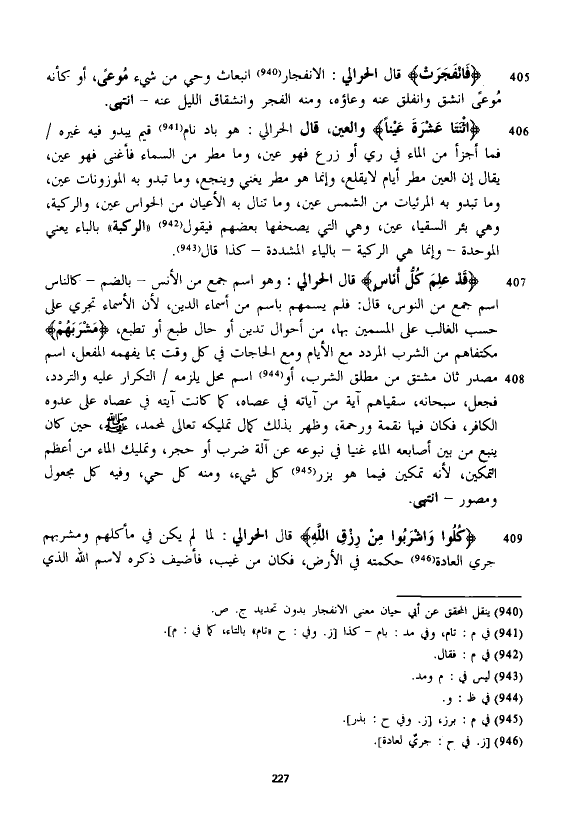 405 ﴿فَانْفَجَرَتْ﴾ قال الحرالي : الانفجار(940) انبعاث وحي من شيء مُوعىً، أو كأنه
مُوعىً انشق وانفلق عنه وعاؤه، ومنه الفجر وانشقاق الليل عنه – انتهى.
406 ﴿اثْنَتَا عَشْرَةَ عَيْناً﴾ والعين، قال الحرالي : هو باد نام(941) قيم يبدو فيه غيره /
فما أجزأ من الماء في ري أو زرع فهو عين، وما مطر من السماء فأغنى فهو عين،
يقال إن العين مطر أيام لايقلع، وإنما هو مطر يغني وينجع، وما تبدو به الموزونات عين،
وما تبدو به المرئيات من الشمس عين، وما تنال به الأعيان من الحواس عين، والركية،
وهي بئر السقيا، عين، وهي التي يصحفها بعضهم فيقول(942) «الركبة» بالباء يعني
الموحدة – وإنما هي الركية – بالياء المشددة – كذا قال(943).
407 ﴿قَدْ عَلِمَ كُلُّ أُنَاسٍ﴾ قال الحرالي : وهو اسم جمع من الأنس – بالضم – كالناس
اسم جمع من النوس، قال: فلم يسمهم باسم من أسماء الدين، لأن الأسماء تجري على
حسب الغالب على المسمين بها، من أحوال تدين أو حال طبع أو تطبع، ﴿مَشْرَبَهُمْ﴾
مكتفاهم من الشرب المردد مع الأيام ومع الحاجات في كل وقت بما يفهمه المفعل، اسم
408 مصدر ثان مشتق من مطلق الشرب، أو(944) اسم محل يلزمه / التكرار عليه والتردد،
فجعل، سبحانه، سقياهم آية من آياته في عصاه، كما كانت آيته في عصاه على عدوه
الكافر، فكان فيها نقمة ورحمة، وظهر بذلك كمال تمليكه تعالى لمحمد، ﷺ، حين كان
ينبع من بين أصابعه الماء غنيا في نبوعه عن آلة ضرب أو حجر، وتمليك الماء من أعظم
التمكين، لأنه تمكين فيما هو بزر(945) كل شيء، ومنه كل حي، وفيه كل مجعول
ومصور – انتهى.
409 ﴿كُلُوا وَاشْرَبُوا مِنْ رِزْقِ اللَّهِ﴾ قال الحرالي : لما لم يكن في مأكلهم ومشربهم
جري العادة(946) حكمته في الأرض، فكان من غيب، فأضيف ذكره لاسم الله الذي
(940) ينقل المحقق عن أبي حيان معنى الانفجار بدون تحديد ج. ص.
(941) في م : تام، وفي مد : بام – كذا [ز. وفي : ح «تام» بالتاء، كما في : م].
(942) في م : فقال.
(943) ليس في : م ومد.
(944) في ظ : و.
(945) في م : برز، [ز. وفي ح : بذر].
(946) [ز. في ح : جريٌ لعادة].
227